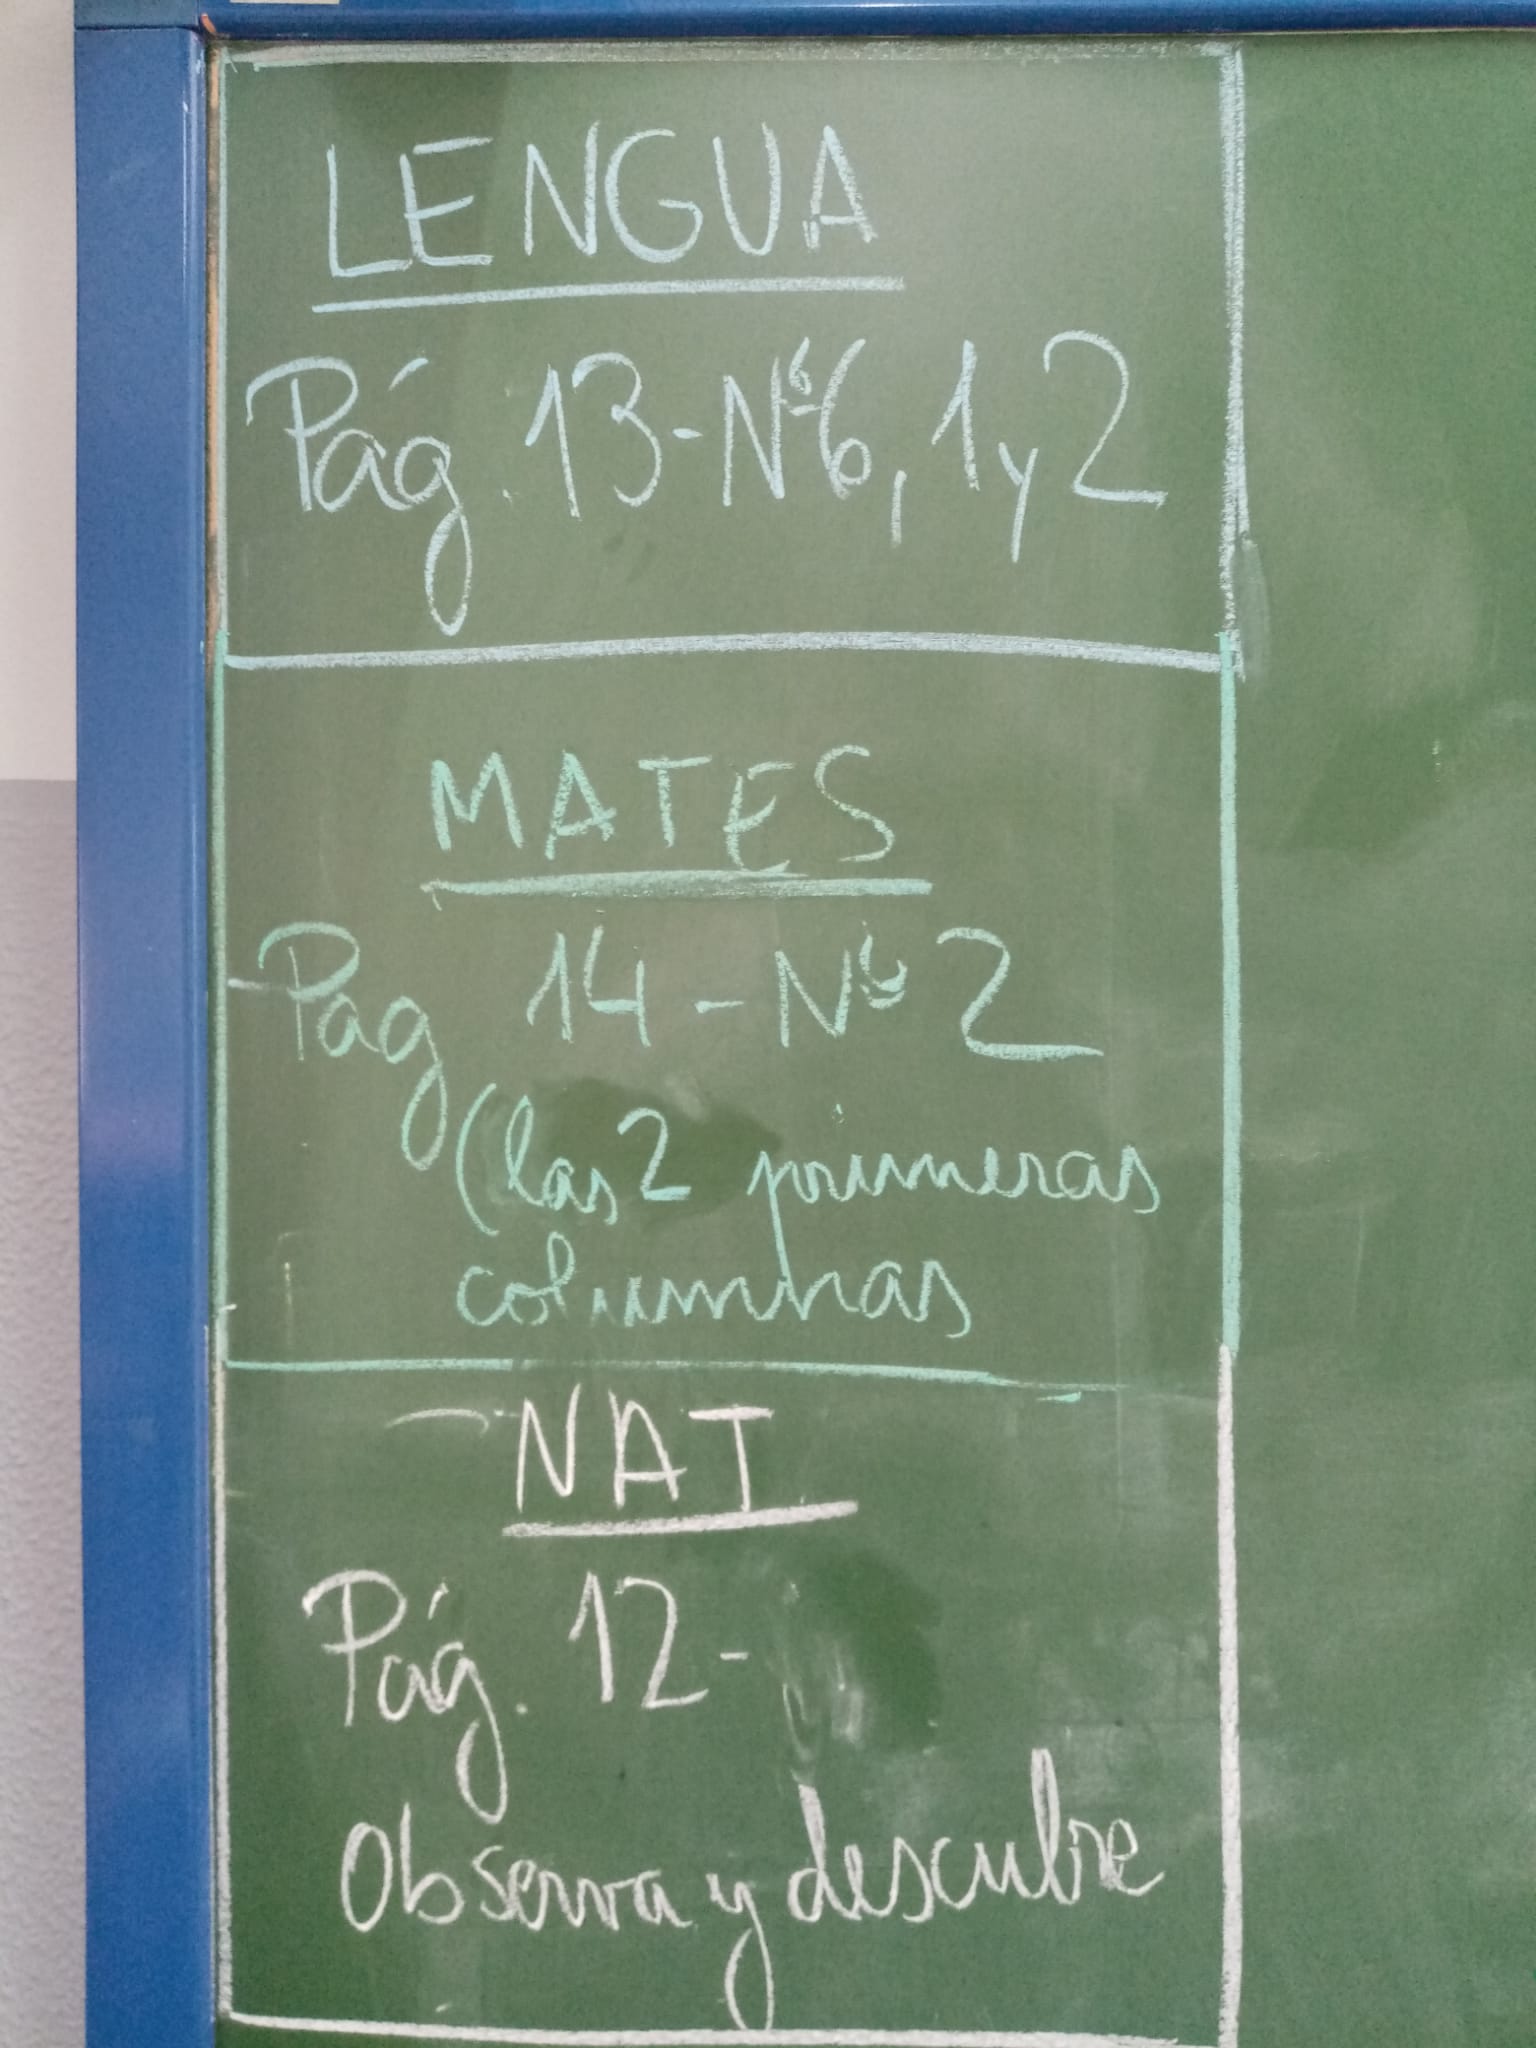 LENGUA
Pág. 13-Nº6, 1 y 2
MATES
Pag 14-Nº 2
(las 2 primeras
columnas
NAT
Pág. 12-
Observa y descubre